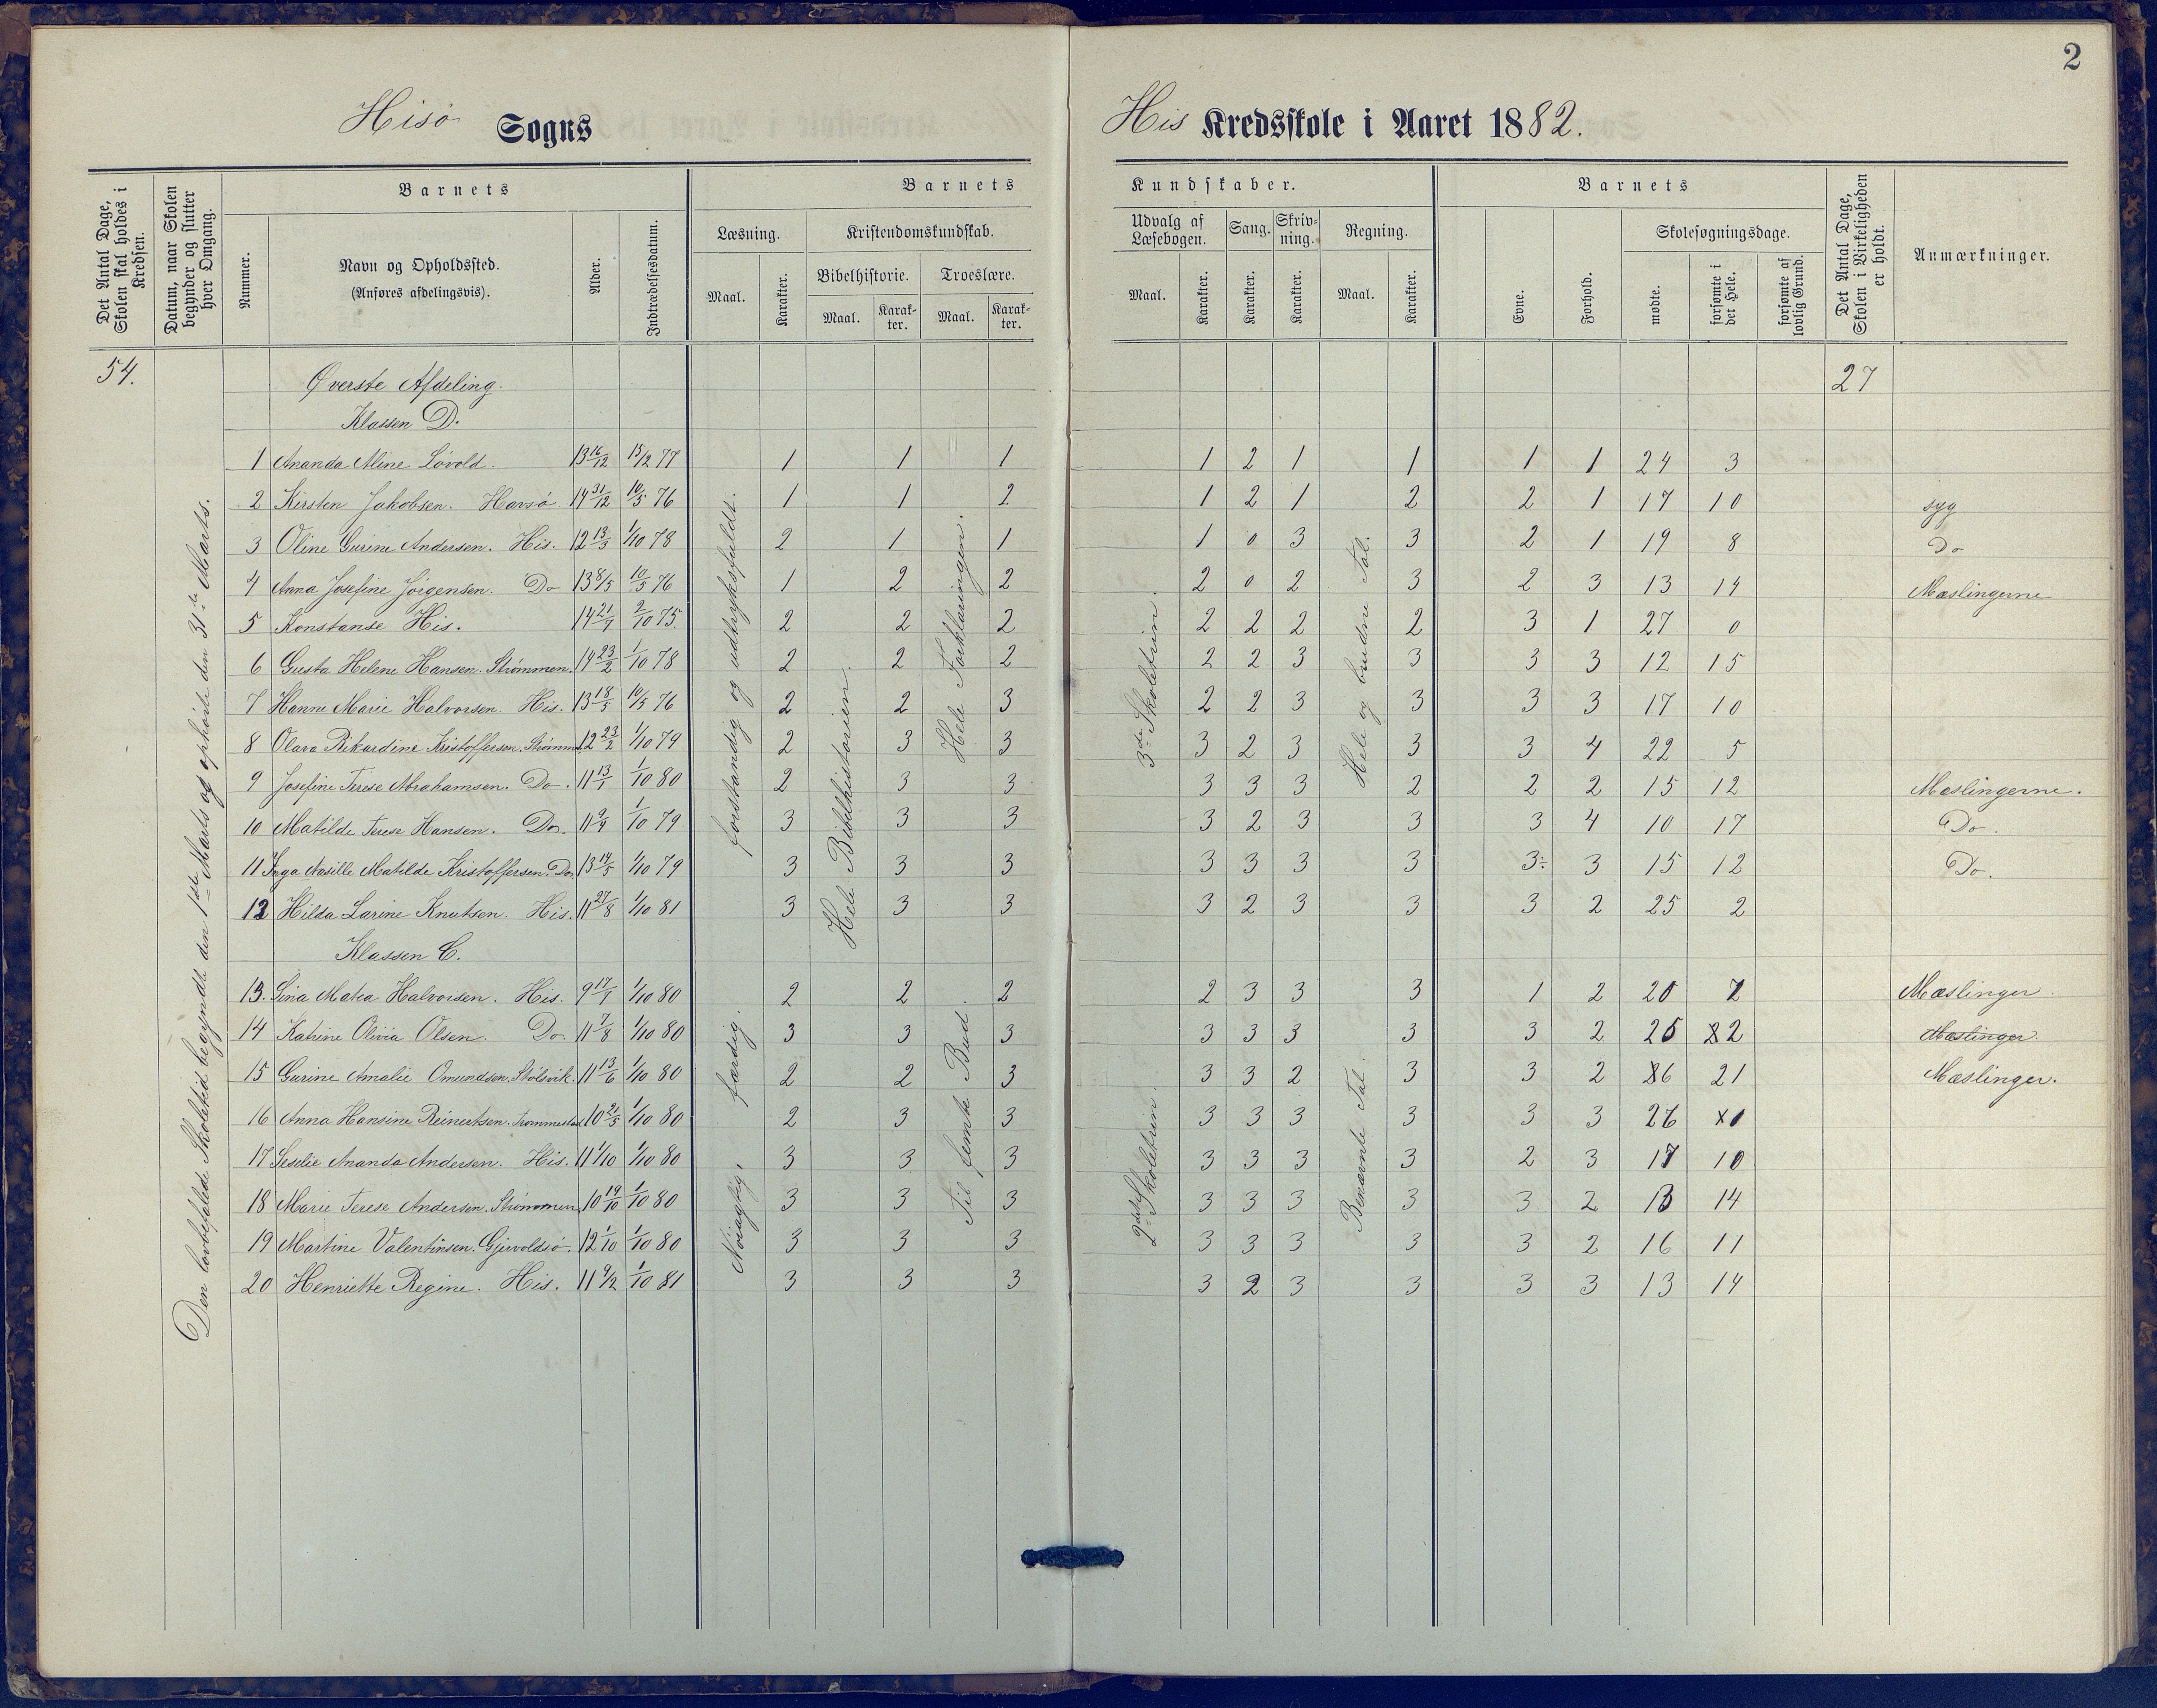 2
Hisø Sogns
His Kredsskole i Aaret 1882.
Det Antal Dage, Skolen skal holdes i Kredsen.
Datum, naar Skolen begynder og slutter hver Omgang.
Barnets
Nummer.
Navn og Opholdssted.
(Anføres afdelingsvis).
Alder.
Indtrædelsesdatum.
Barnets Kundskaber.
Læsning.
Kristendomskundskab.
Bibelhistorie.
Troeslære.
Maal.
Karakter.
Maal.
Karakter.
Maal.
Karakter.
Udvalg af Læsebogen.
Sang.
Skrivning.
Regning.
Maal.
Karakter.
Karakter.
Karakter.
Maal.
Karakter.
Barnets
Evne.
Forhold.
Skolesøgningsdage.
mødte.
forsømte i det Hele.
forsømte af lovlig Grund.
Det Antal Dage, Skolen i Virkeligheden er holdt.
Anmærkninger.
54.
Øverste Afdeling.
27
Klassen D.
Den lovbefalede Skoletid begyndte den 1ste Marts og ophørte den 31te Marts.
forstandig og udtryksfuldt.
Hele Bibelhistorien.
Hele Forklaringen.
3die Skoletrin.
Hele og brudne Tal.
1 Ananda Aline Løvold. 13 16/12 15/2 77 1 1 1 1 2 1 1 1 1 24 3
2 Kirsten Jakobsen. Havsø 14 31/12 10/5 76 1 1 2 1 2 1 2 2 1 17 10 syg
3 Oline Gurine Andersen. His. 12 13/3 1/10 78 2 1 1 1 0 3 3 2 1 19 8 Do
4 Anna Josefine Jørgensen. Do 13 8/5 10/5 76 1 2 2 2 0 2 3 2 3 13 14 Mæslingerne
5 Konstanse His. 14 21/1 2/10 75. 2 2 2 2 2 2 2 3 1 27 0
6 Gusta Helene Hansen. Strømmen. 14 23/2 1/10 78 2 2 2 2 2 3 3 3 3 12 15
7 Hanne Marie Halvorsen. His. 13 18/5 10/5 76 2 2 3 2 2 3 3 3 3 17 10
8 Olava Rikardine Kristoffersen. Strømm. 12 23/2 1/10 79 2 3 3 3 2 3 3 3 4 22 5
9 Josefine Terese Abrahamsen. Do. 11 13/1 1/10 80 2 3 3 3 3 3 2 2 2 15 12 Mæslingerne.
10 Matilde Terese Hansen. Do. 11 9/9 1/10 79 3 3 3 3 2 3 3 3 4 10 17 Do.
11 Inga Nasille Matilde Kristoffersen. Do. 13 14/5 1/10 79 3 3 3 3 3 3 3 3÷ 3 15 12 Do.
12 Hilda Larine Knutsen. His. 11 27/8 1/10 81 3 3 3 3 2 3 3 3 2 25 2
Klassen C.
Nøiagtig, færdig.
Til femte Bud
2det Skoletrin.
Benævnte Tal.
13. Lina Matea Halvorsen. His. 9 17/7 1/10 80 2 2 2 2 3 3 3 1 2 20 7 Mæslinger
14 Katrine Olivia Olsen. Do. 11 7/8 1/10 80 3 3 3 3 3 3 3 3 2 25 2 Mæslinger.
15 Gurine Amalie Omundsen. Stølsvik. 11 13/6 1/10 80 2 2 3 3 3 2 3 3 2 6 21 Mæslinger.
16 Anna Hansine Reinertsen. Trommestad 10 21/5 1/10 80 2 3 3 3 3 3 3 3 3 26 1
17 Seselie Ananda Andersen. His. 11 1/10 1/10 80 3 3 3 3 3 3 3 2 3 17 10
18 Marie Terese Andersen. Strømmen 10 19/10 1/10 80 3 3 3 3 3 3 3 3 2 13 14
19 Martine Valentinsen. Gjervoldsø. 12 1/10 1/10 80 3 3 3 3 3 3 3 3 2 16 11
20 Henriette Regine. His. 11 4/2 1/10 81 3 3 3 3 2 3 3 3 3 13 14